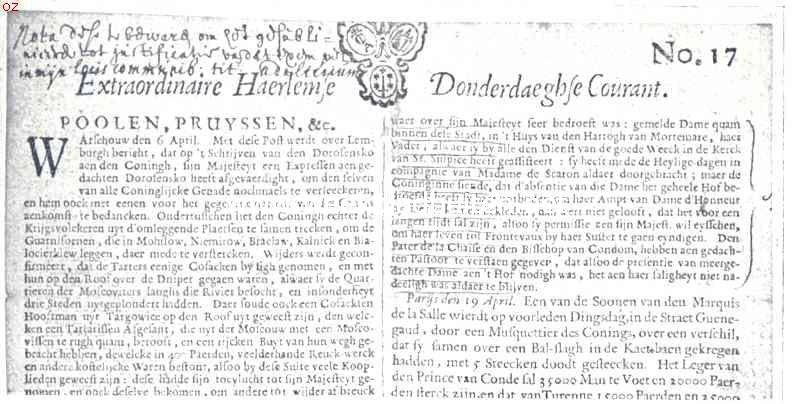 OZ
Nota dese te bewaren om het gepubli-
No. 17
Extraordinaire Haerlemse Donderdaeghse Courant.
POOLEN, PRUYSSEN, &c.
WArschouw den 6 April. Met dese Post werdt over Lem-
burgh bericht, dat op 't Schrijven van den Dorosensko
aen den Coningh, sijn Majesteyt een Expressen aenge-
dachten Dorosensko heeft afgevaerdight, om den selven
van alle Coninghlijcke Genade nochmaels te verseeckeren,
en hem oock met eenen voor het
aenkomst te bedancken. Ondertusschen liet den Coningh echter de
Krijgsvolckeren uyt d'omleggende Plaetsen te samen trecken, om de
Guarnisoenen, die in Mohilow, Niemirow, Braclaw, Kalnick en Bia-
locierkiew leggen, daer mede te verstercken. Wijders werdt gecon-
firmeert, dat de Tarters eenige Cosacken by sigh genomen, en met
hun op den Roof over de Dniper gegaen waren, alwaer sy de Quar-
tieren der Moscoviters langhs die Rivier besocht, en insonderheyt
drie Steden uytgeplondert hadden. Daer soude oock een Cosackisen
Hooftman uyt Targowice op den Roof uyt geweest zijn, den welc-
ken een Tartarissen Afgesant, die uyt der Moscouw met een Mosco-
vissen te rugh quam, berooft, en een rijcken Buyt van hun wegh ge-
bracht hebben, dewelcke in 40 Paerden, veelderhande Reuck-werck
en andere kostelijcke Waren bestont, alsoo by dese Suite veele Koop-
lieden geweest zijn: dese hadde sijn toevlucht tot sijn Majesteyt ge-
nomen, en oock deselve bekomen, om andere tot wijder afbreuck
waer over sijn Majesteyt seer bedroeft was: gemelde Dame quam
binnen dese Stadt, in 't Huys van den Hartogh van Mortemare, haer
Vader, alwaer sy by alle den Dienst van de goede Weeck in de Kerck
van St. Sulpice heeft geassisteert: sy heeft mede de Heylige-dagen in
compagnie van Madame de Scaron aldaer doorgebracht; maer de
Coninginne siende, dat d'absentie van die Dame het geheele Hof be-
droefde, heeft sy haer ontboden, om haer Ampt van Dame d'Honneur
niet gelooft, dat het voor een
langen tijdt sal zijn, alsoo sy permissie aen sijn Majest. wil eysschen,
om haer leven tot Frontevaux by haer Suster te gaen eyndigen. Den
Pater de la Chaise en den Bisschop van Condom, hebben aen gedach-
ten Pastoor te verstaen gegeven, dat alsoo de presentie van meerge-
dachte Dame aen 't Hof nodigh was, het aen haer saligheyt niet na-
deeligh was aldaer te blijven.
Parijs den 19 April. Een van de Soonen van den Marquis
de la Salle wierdt op voorleden Dingsdag, in de Straet Guene-
gaud, door een Musquettier des Conings, over een verschil,
dat sy samen over een Bal-slagh in de Kaetsbaen gekregen
hadden, met 5 Steecken doodt gesteecken. Het Leger van
den Prince van Conde sal 35000 Man te Voet en 20000 Paer-
den sterck zijn, en dat van Turenne 15000 Paerden en 25000